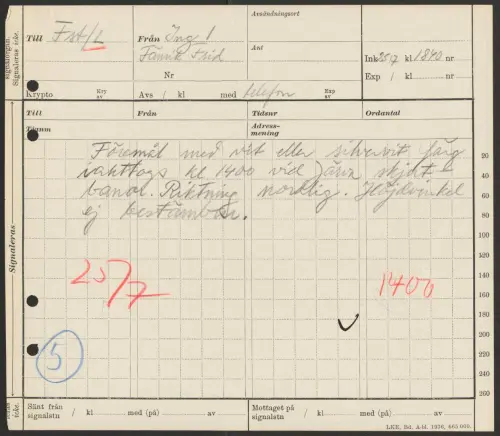 Användningsort
signalorgan.
Signaleras icke.
Till Fst/L
Från Ing 1
Fänrik Frid
Ant
Ink 25/7 kl 1840 nr
Nr
Exp / kl nr
Krypto Kry av
Avs / kl med telefon Exp av
Till Från Tidsnr Ordantal
Datum Adress-
mening
Föremål med vit eller silvervit färg
iakttogs kl 1400 vid skjut-
banor. Riktning nordlig. Höjdvinkel
ej bestämbar.
20
40
60
80
100
120
140
160
180
200
220
240
260
Signaleras
25/7
1400
5
icke.
Sänt från
signalstn / kl med (på) av
Mottaget på
signalstn / kl med (på) av
LKE, Bst. A-bl. 1936, 465 060.